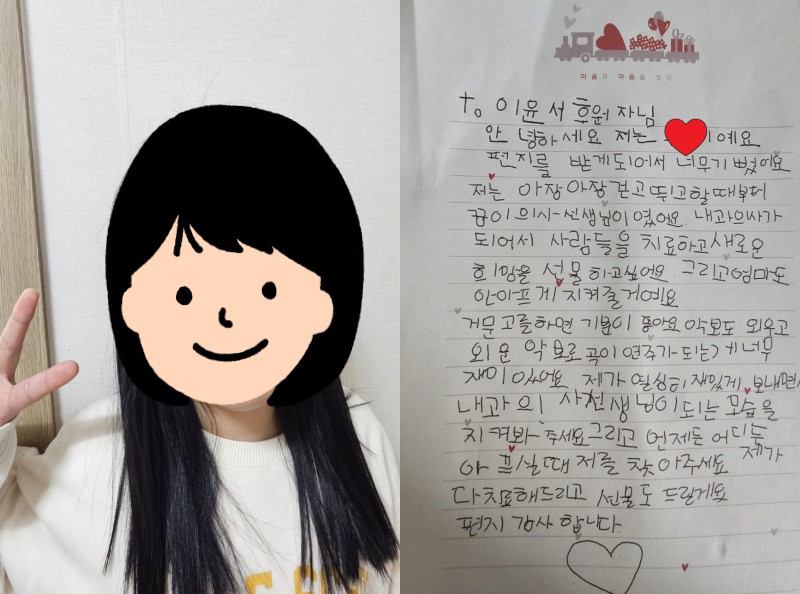 마음과 마음을 잇다
To 이윤서 후원자님
안녕하세요 저는 이예요
편지를 받게되어서 너무기뻤어요
저는 아장아장 걷고 뛰고할때부터
꿈이 의사선생님이였어요 내과의사가
되어서 사람들을 치료하고 새로운
희망을 선물하고싶어요 그리고엄마도
안아프게 지켜줄거예요
거문고를하면 기분이 좋아요 악보도 외우고
외운 악보로 곡이 연주가 되는게 너무
재미있어요 제가 열심히 재밌게 보내면서
내과의 사선생님이되는 모습을
지켜봐 주세요 그리고 언제든 어디든
아프실때 저를 찾아주세요 제가
다치료해드리고 선물도 드릴게요
편지 감사합니다